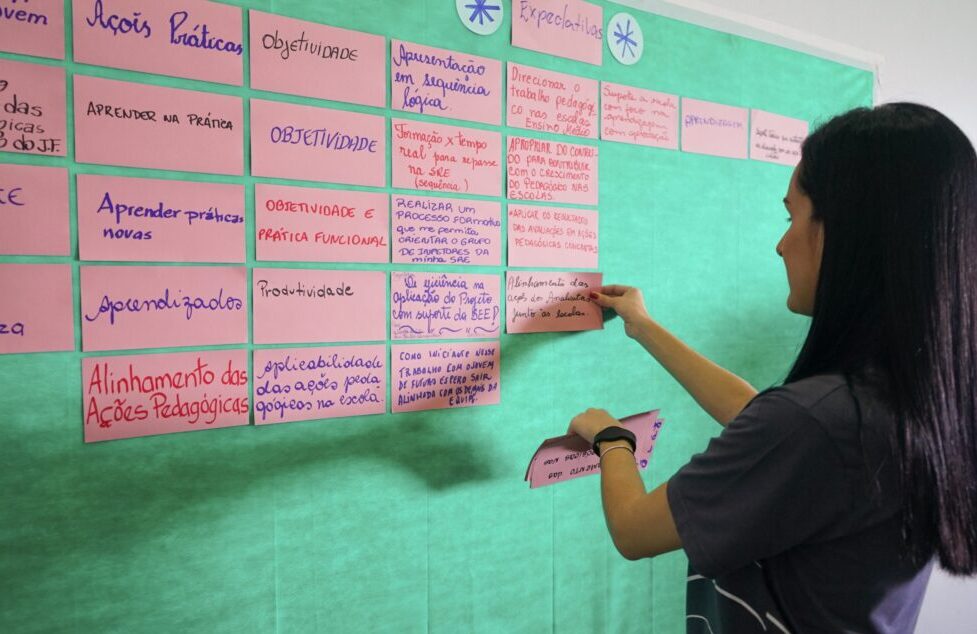 ovem
das
gicas
do J.F.
CE
za
Açois Práticas
APRENDER NA PRÁTICA
Aprender práticas
novas
Aprendizados
Alinhamento das
Ações Pedagógicas
Objetividade
OBJETIVIDADE
OBJETIVIDADE E
PRÁTICA FUNCIONAL
Produtividade
Aplicabilidade
das ações peda
gógicas na escola.
Apresentação
em sequência
lógica.
Formação x tempo
real para repasse
na SRE
(sequência)
REALIZAR UM
PROCESSO FORMATIVO
que me permita
ORIENTAR O GRUPO
DE INSPETORES DA
minha SRE
aplicação do Projeto
com suporte da SEE!
COMO INICIANTE NESSE
TRABALHO COM OJOVEM
DE FUTURO ESPERO SAIR
ALINHADA COM OS DEMAIS DA
EQUIPE.
Expectativas
Direcionar o
trabalho pedagógi
co nas escolas
Ensino Médio
APROPRIAR DO CONTEÚ-
DO PARA CONTRIBUIR
COM O CRESCIMENTO
DO PEDAGÓGICO NAS
ESCOLAS.
*APLICAR OS RESULTADOS
DAS AVALIAÇÕES EM AÇÕES
PEDAGÓGICAS CONCRETAS
Alinhamento das
ações dos Analistas
junto às escolas.
Suporte a escola
com foco na
aprendizagem
APRENDIZAGEM